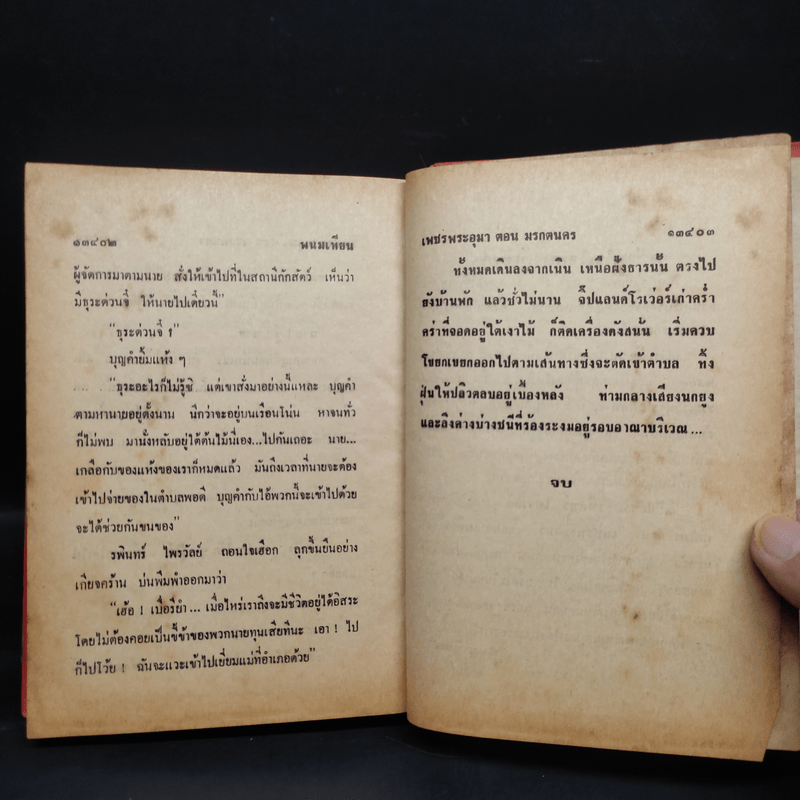 ๑๓๔๐๒ พนมเทียน
ผู้จัดการมาตามนาย สั่งให้เข้าไปที่ในสถานีกักสัตว์ เห็นว่า
มีธุระด่วนจี๋ ให้นายไปเดี๋ยวนี้”
“ธุระด่วนจี๋ !”
บุญคำยิ้มแห้ง ๆ
“ธุระอะไรก็ไม่รู้ซิ แต่เขาสั่งมาอย่างนี้แหละ บุญคำ
ตามหานายอยู่ตั้งนาน นึกว่าจะอยู่บนเรือนโน่น หาจนทั่ว
ก็ไม่พบ มานั่งหลับอยู่ใต้ต้นไม้นี่เอง...ไปกันเถอะ นาย...
เกลือกับของแห้งของเราก็หมดแล้ว มันถึงเวลาที่นายจะต้อง
เข้าไปจ่ายของในตำบลพอดี บุญคำกับไอ้พวกนี้จะเข้าไปด้วย
จะได้ช่วยกันขนของ”
รพินทร์ ไพรวัลย์ ถอนใจเฮือก ลุกขึ้นยืนอย่าง
เกียจคร้าน บ่นพึมพำออกมาว่า
“เฮ้อ ! เบื่อริยำ ... เมื่อไหร่เราถึงจะมีชีวิตอยู่ได้อิสระ
โดยไม่ต้องคอยเป็นขี้ข้าของพวกนายทุนเสียทีนะ เอา ! ไป
ก็ไปโว้ย ! ฉันจะแวะเข้าไปเยี่ยมแม่ที่อำเภอด้วย”
เพชรพระอุมา ตอน มรกตนคร ๑๓๔๐๓
ทั้งหมดเดินลงจากเนิน เหนือฝั่งธารนั้น ตรงไป
ยังบ้านพัก แล้วชั่วไม่นาน จี๊ปแลนด์โรเว่อร์เก่าคร่ำ
คร่าที่จอดอยู่ใต้เงาไม้ ก็ติดเครื่องดังสนั่น เริ่มควบ
โขยกเขยกออกไปตามเส้นทางซึ่งจะตัดเข้าตำบล ทิ้ง
ฝุ่นให้ปลิวตลบอยู่เบื้องหลัง ท่ามกลางเสียงนกยูง
และลิงค่างบ่างชนีที่ร้องระงมอยู่รอบอาณาบริเวณ ...
จบ